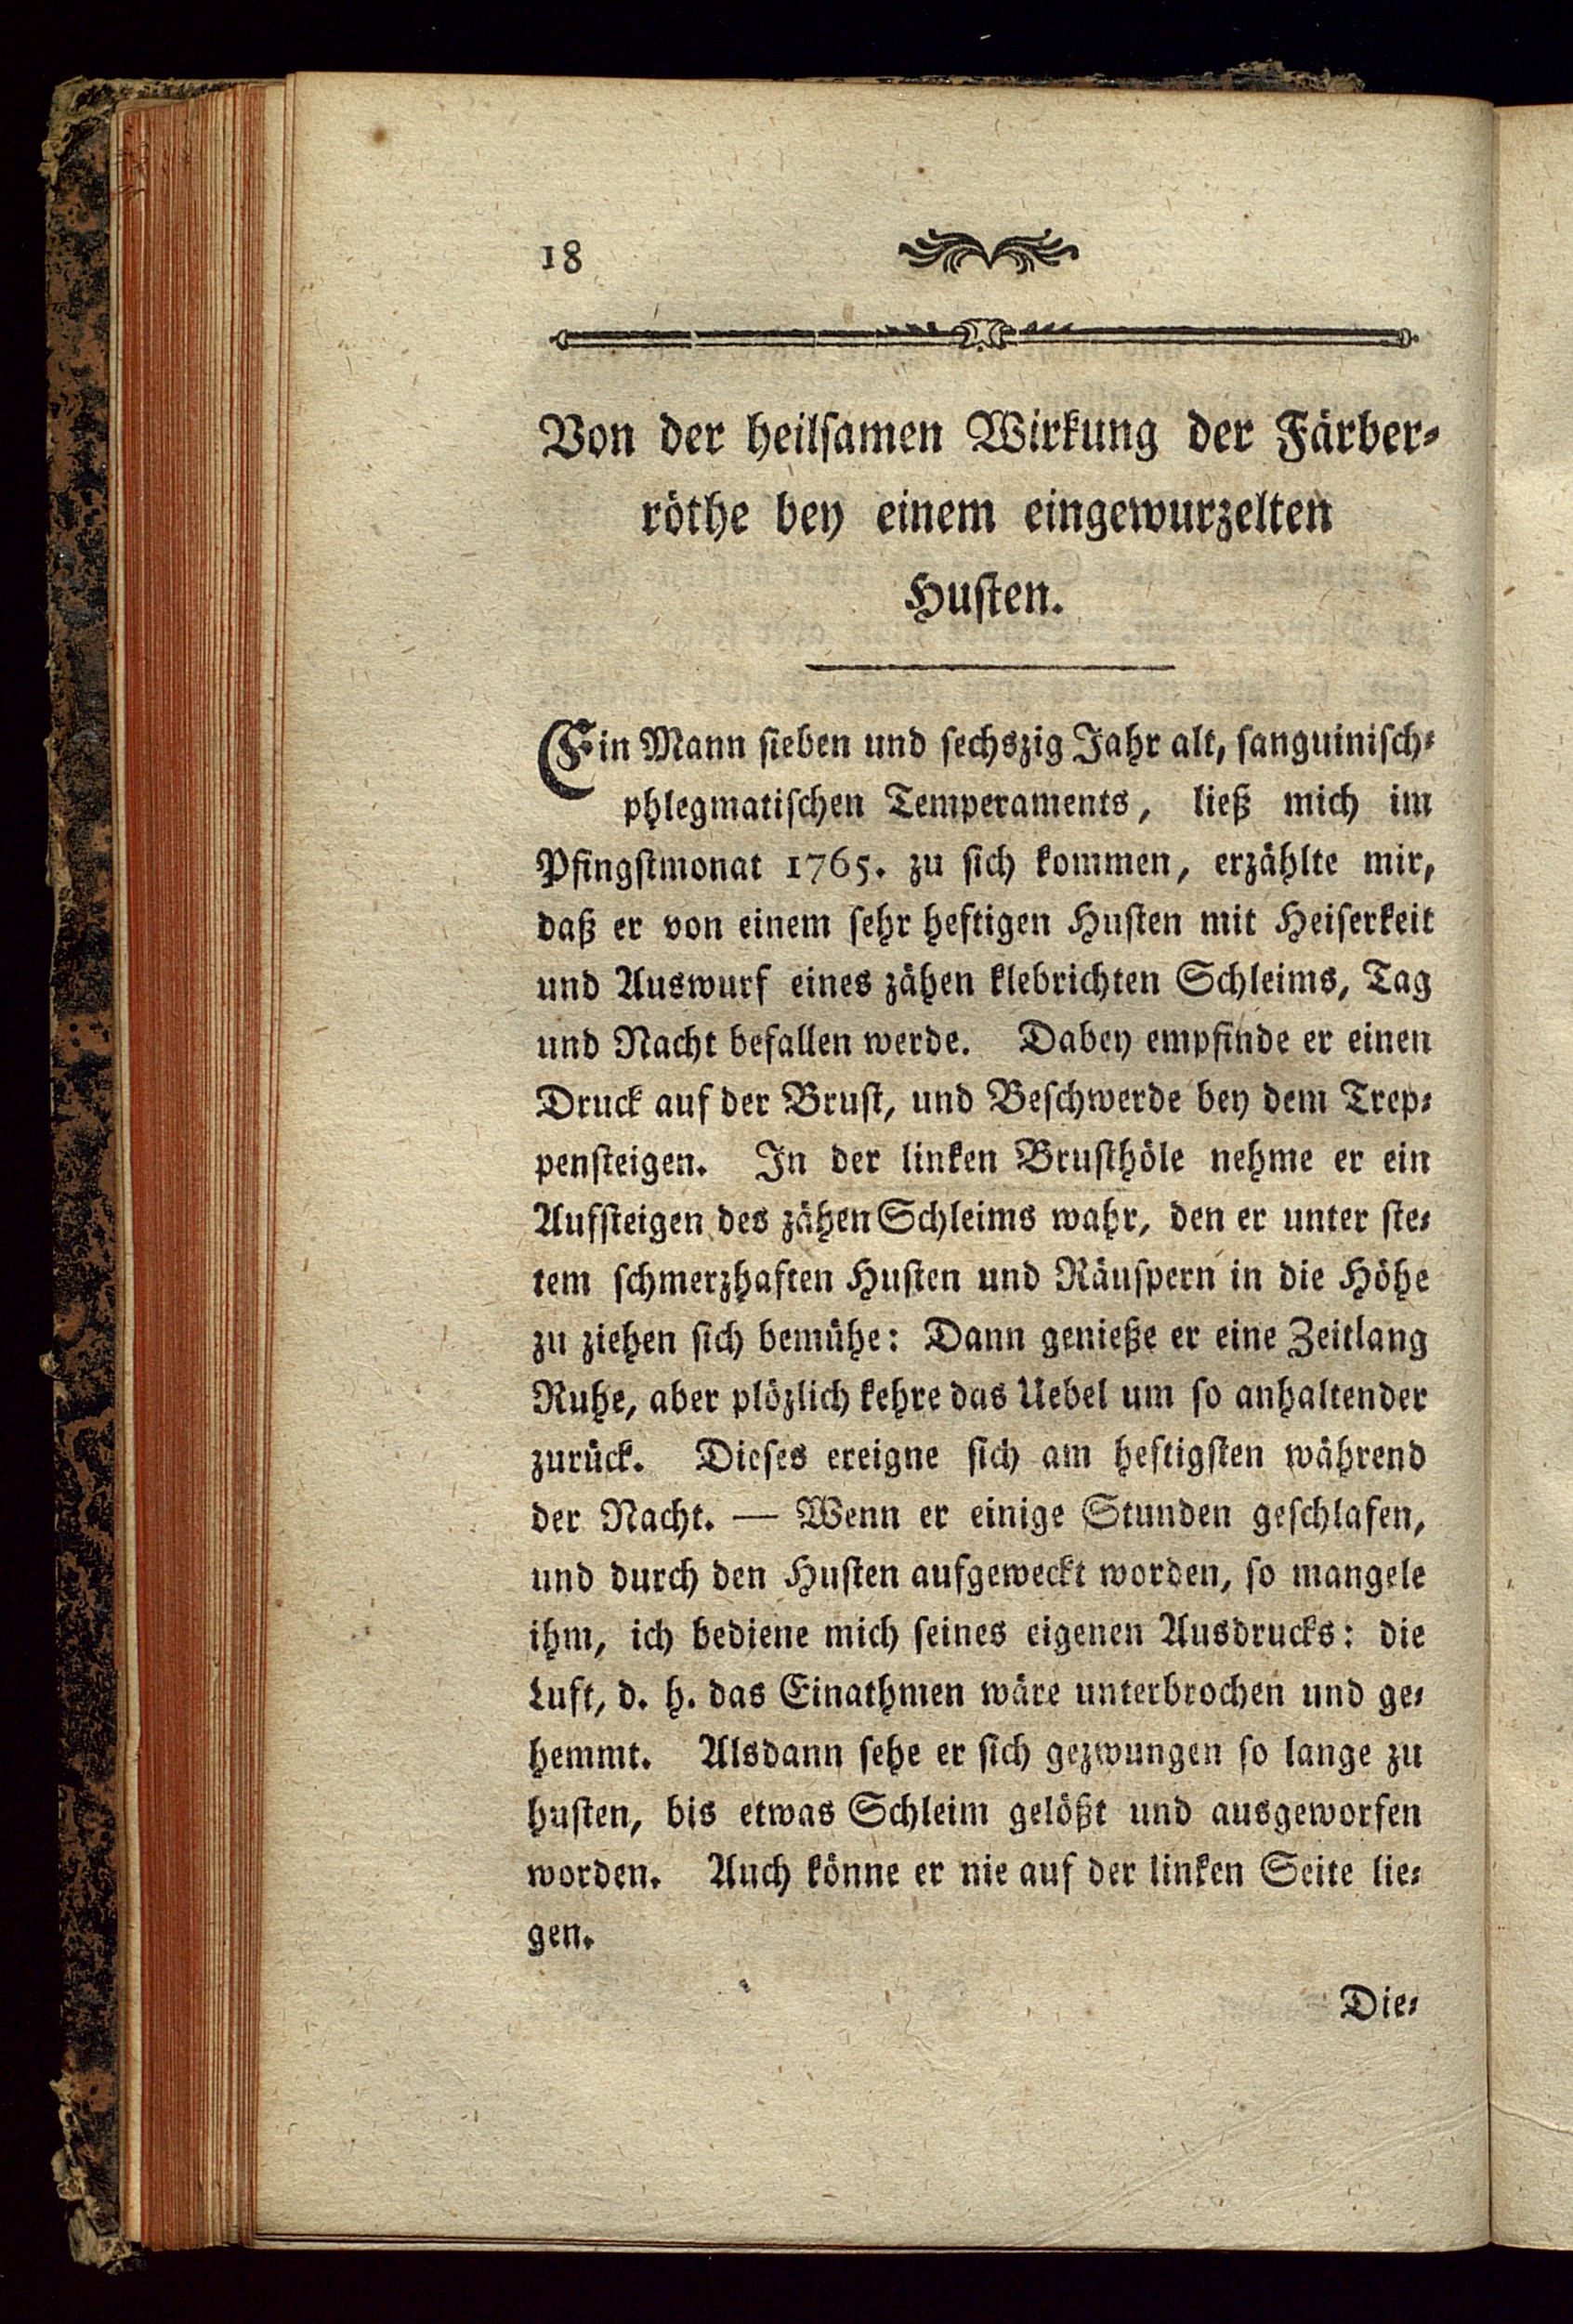 18
Von der heilsamen Wirkung der Färber-
röthe bey einem eingewurzelten
Husten.
Ein Mann sieben und sechszig Jahr alt, sanguinisch-
phlegmatischen Temperaments, ließ mich im
Pfingstmonat 1765. zu sich kommen, erzählte mir,
daß er von einem sehr heftigen Husten mit Heiserkeit
und Auswurf eines zähen klebrichten Schleims, Tag
und Nacht befallen werde. Dabey empfinde er einen
Druck auf der Brust, und Beschwerde bey dem Trep-
pensteigen. In der linken Brusthöle nehme er ein
Aufsteigen des zähen Schleims wahr, den er unter ste-
tem schmerzhaften Husten und Räuspern in die Höhe
zu ziehen sich bemühe: Dann genieße er eine Zeitlang
Ruhe, aber plözlich kehre das Uebel um so anhaltender
zurück. Dieses ereigne sich am heftigsten während
der Nacht. — Wenn er einige Stunden geschlafen,
und durch den Husten aufgeweckt worden, so mangele
ihm, ich bediene mich seines eigenen Ausdrucks: die
Luft, d. h. das Einathmen wäre unterbrochen und ge-
hemmt. Alsdann sehe er sich gezwungen so lange zu
husten, bis etwas Schleim gelößt und ausgeworfen
worden. Auch könne er nie auf der linken Seite lie-
gen.
Die-